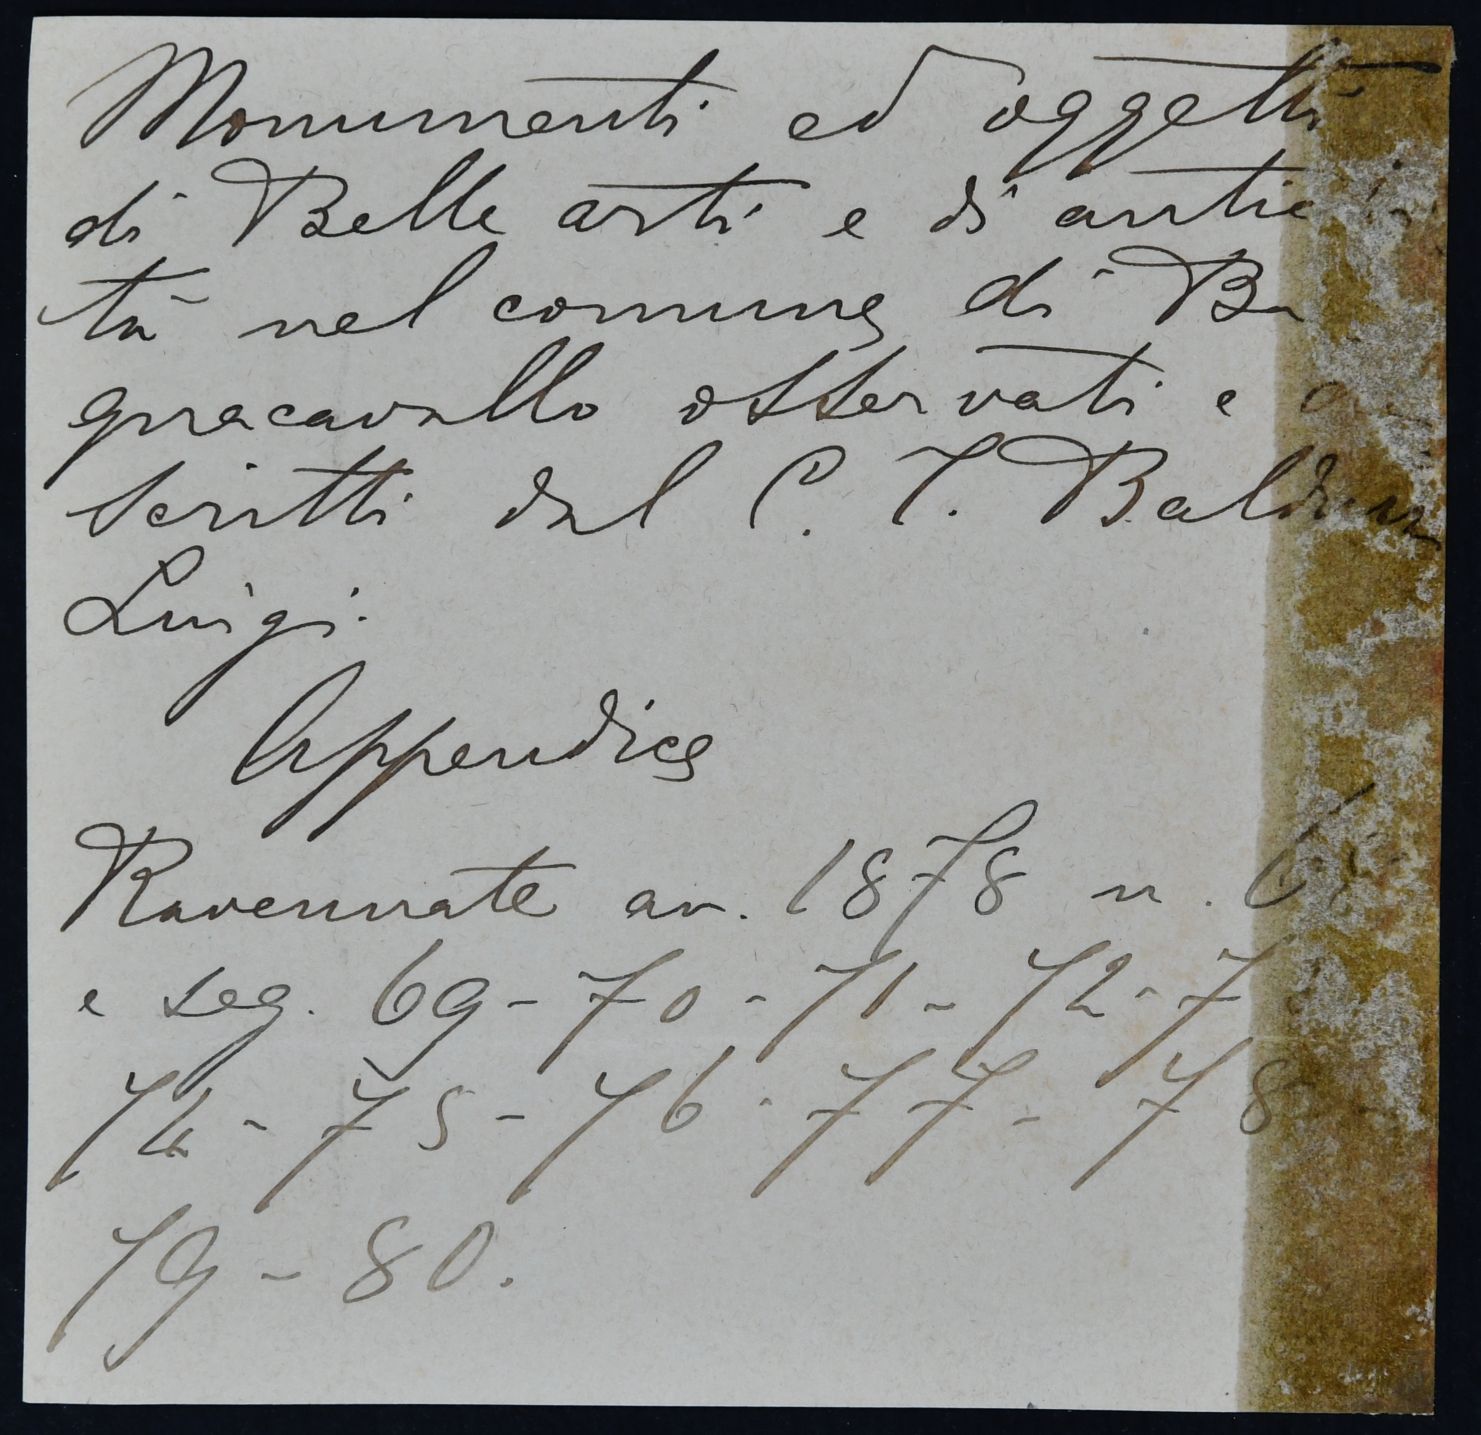 Monumenti ed oggetti
di Belle arti e di antic
tà nel comune di Ba
gnacavallo osservati e
scritti dal C. T. Baldin
Luigi.
Appendice
Ravennate an. 1878 n. 6
e seg. 69 - 70 - 71 - 72 - 7
74 - 75 - 76 - 77 - 78
79 - 80.